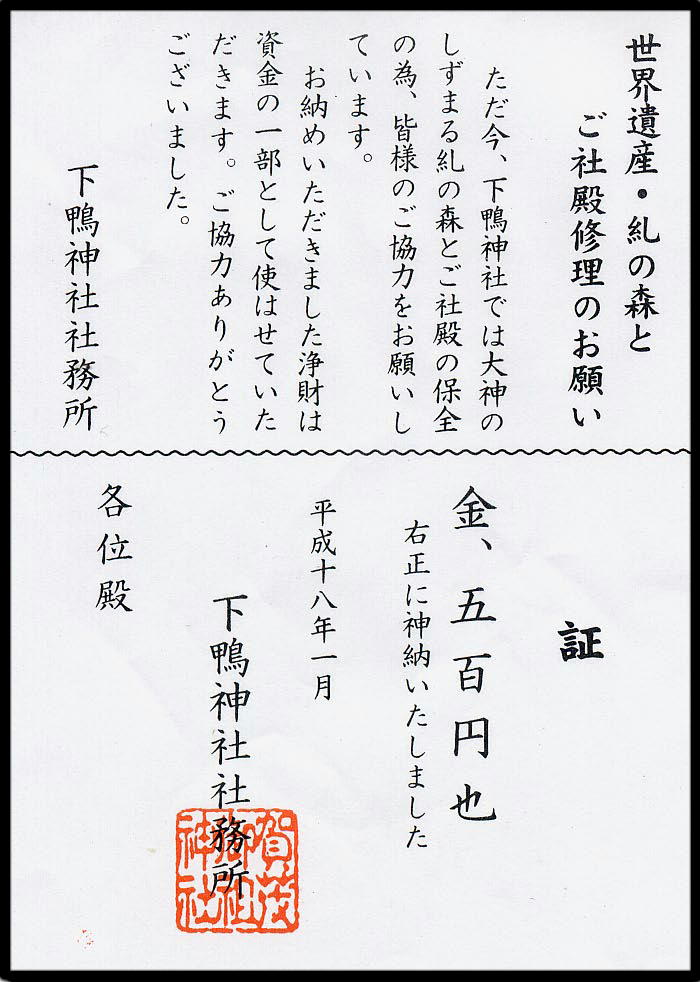 世界遺産・糺の森と
ご社殿修理のお願い
ただ今、下鴨神社では大神の
しずまる糺の森とご社殿の保全
の為、皆様のご協力をお願いし
ています。
お納めいただきました浄財は
資金の一部として使はせていた
だきます。ご協力ありがとう
ございました。
下鴨神社社務所
証
金、五百円也
右正に神納いたしました
平成十八年一月
下鴨神社社務所
賀茂
御祖
神社
各位殿